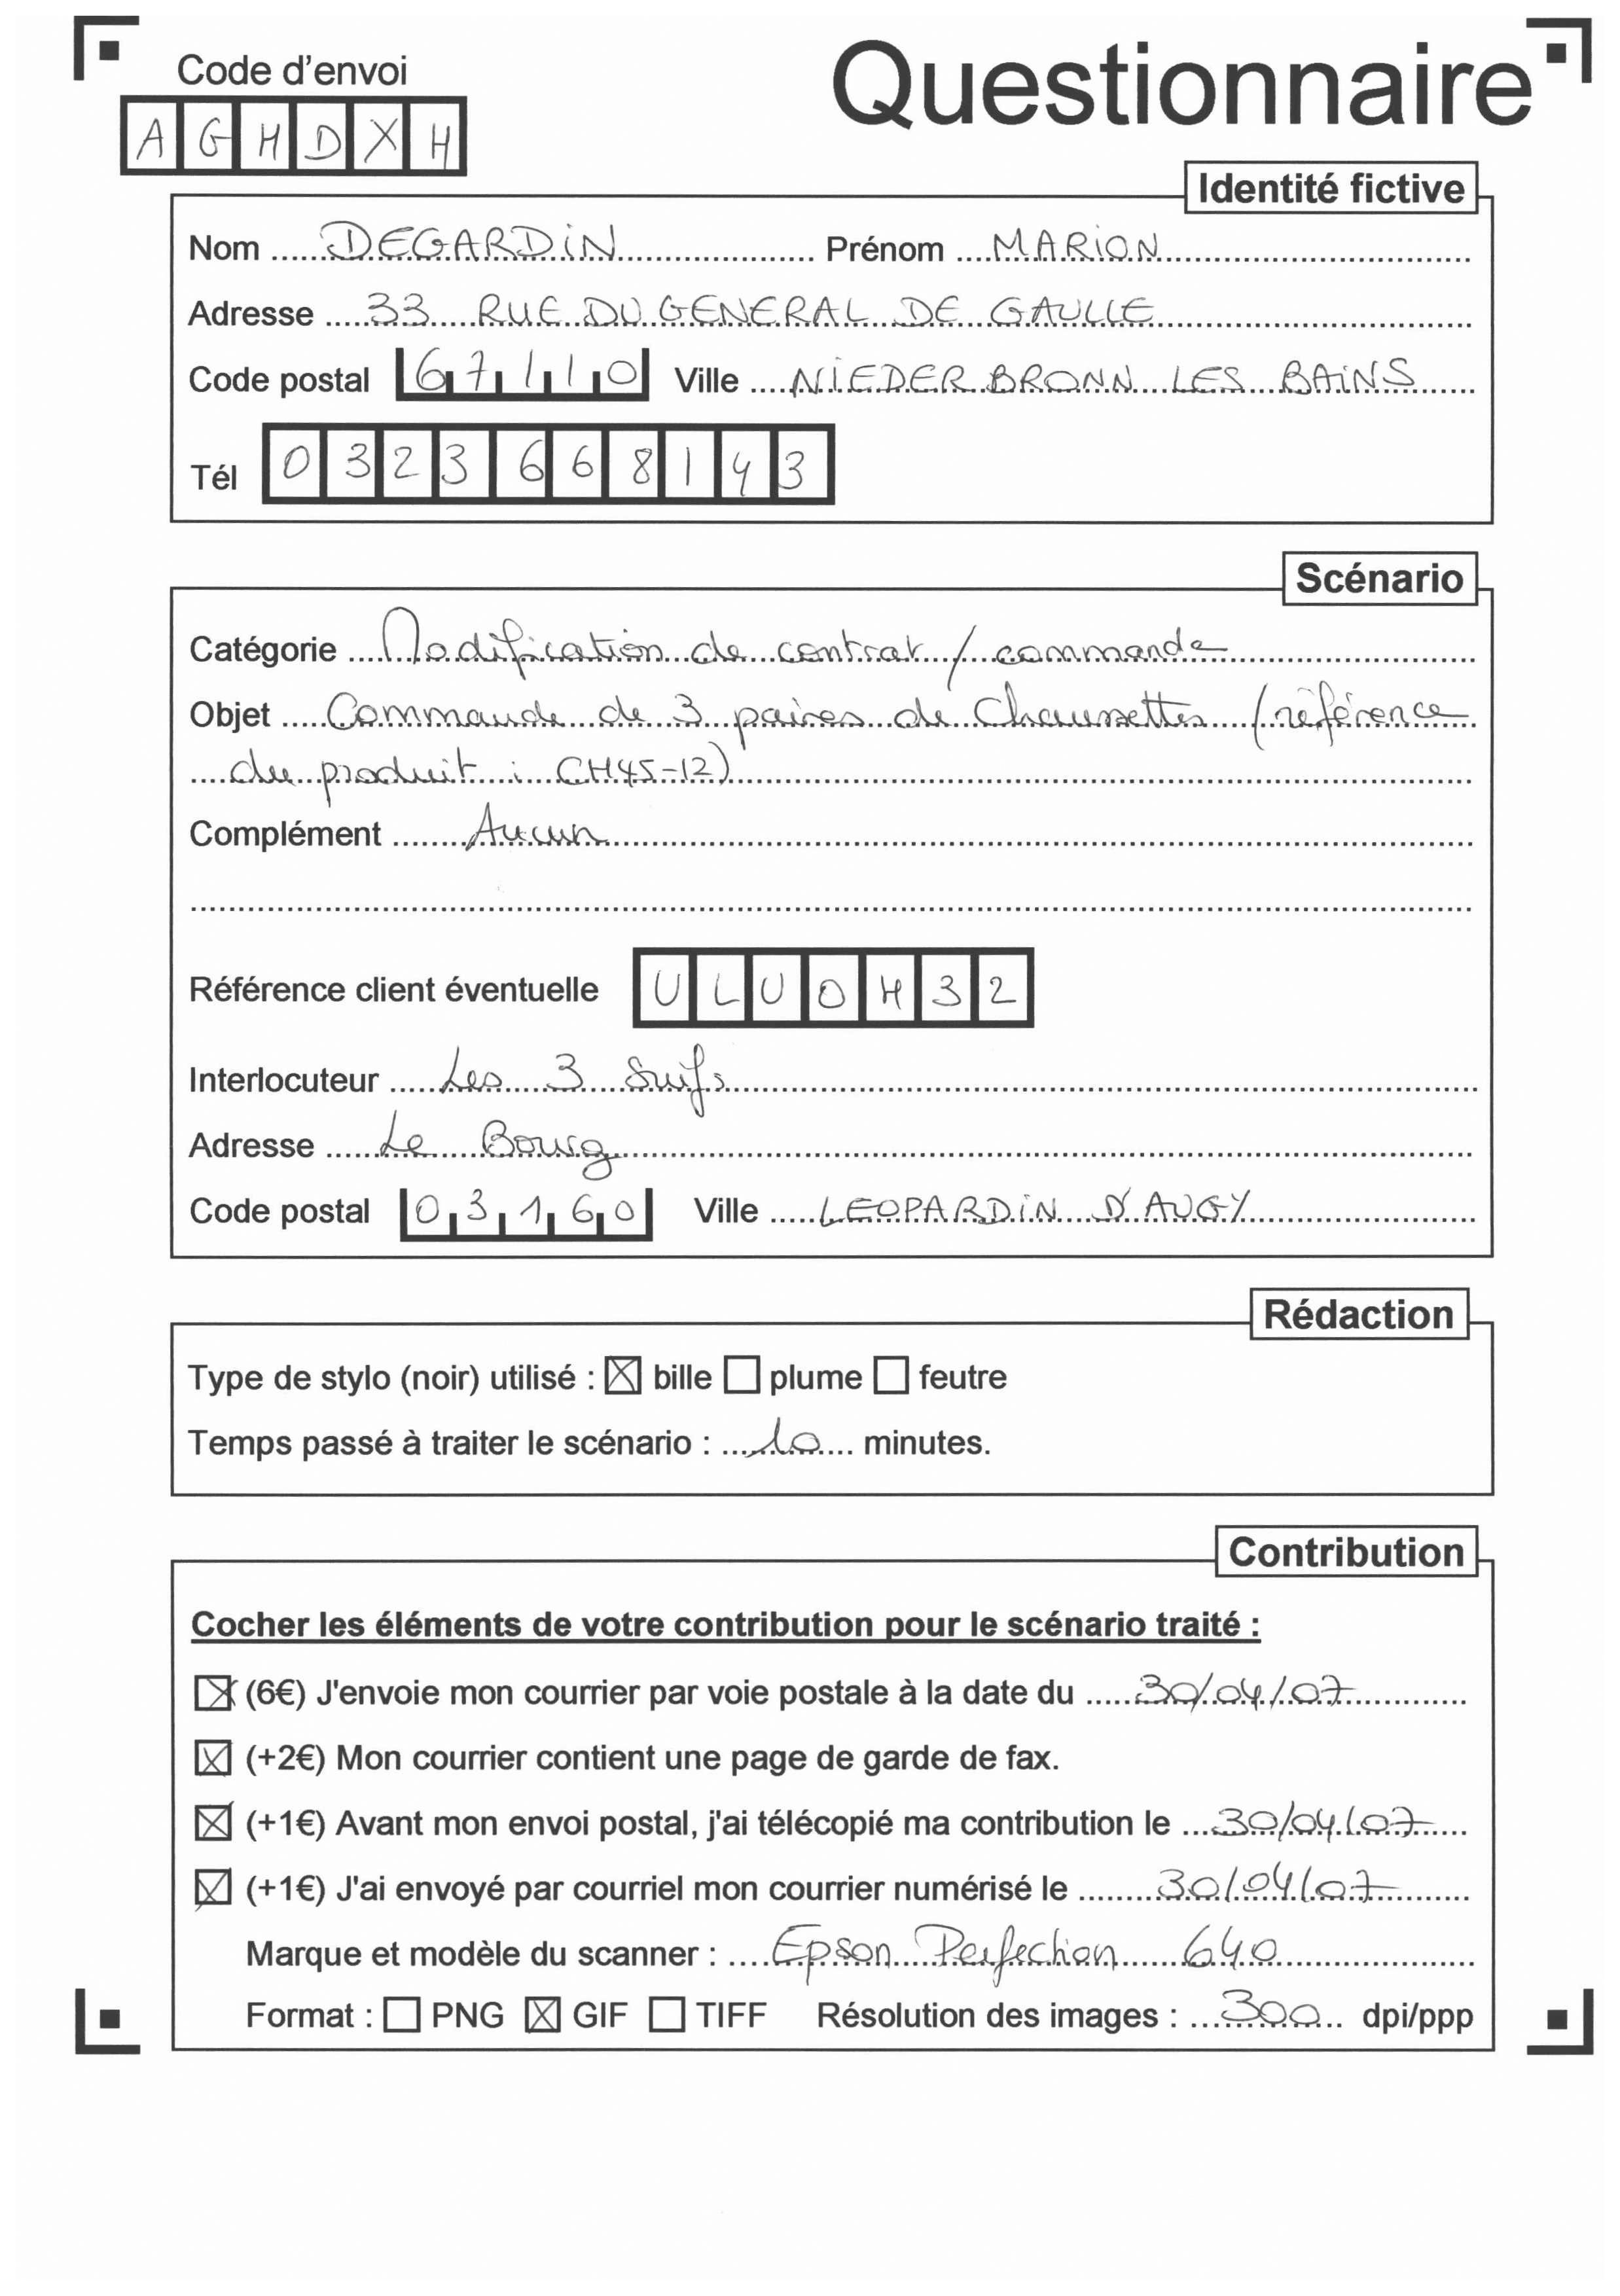 Code d'envoi
Questionnaire
A G H D X H
Identité fictive
Nom DEGARDIN Prénom MARION
Adresse 33 RUE DU GENERAL DE GAULLE
Code postal 67110 Ville NIEDERBRONN LES BAINS
Tél 0323668143
Scénario
Catégorie Modification de contrat / commande
Objet Commande de 3 paires de Chaussettes (référence
du produit : CH45-12)
Complément Aucun
Référence client éventuelle ULUOH32
Interlocuteur Les 3 Suifs
Adresse Le Bourg
Code postal 03160 Ville LEOPARDIN D'AUGY
Rédaction
Type de stylo (noir) utilisé : ☒ bille ☐ plume ☐ feutre
Temps passé à traiter le scénario : 10 minutes.
Contribution
Cocher les éléments de votre contribution pour le scénario traité :
☒ (6€) J'envoie mon courrier par voie postale à la date du 30/04/07
☒ (+2€) Mon courrier contient une page de garde de fax.
☒ (+1€) Avant mon envoi postal, j'ai télécopié ma contribution le 30/04/07
☒ (+1€) J'ai envoyé par courriel mon courrier numérisé le 30/04/07
Marque et modèle du scanner : Epson Perfection 640
Format : ☐ PNG ☒ GIF ☐ TIFF Résolution des images : 300 dpi/ppp